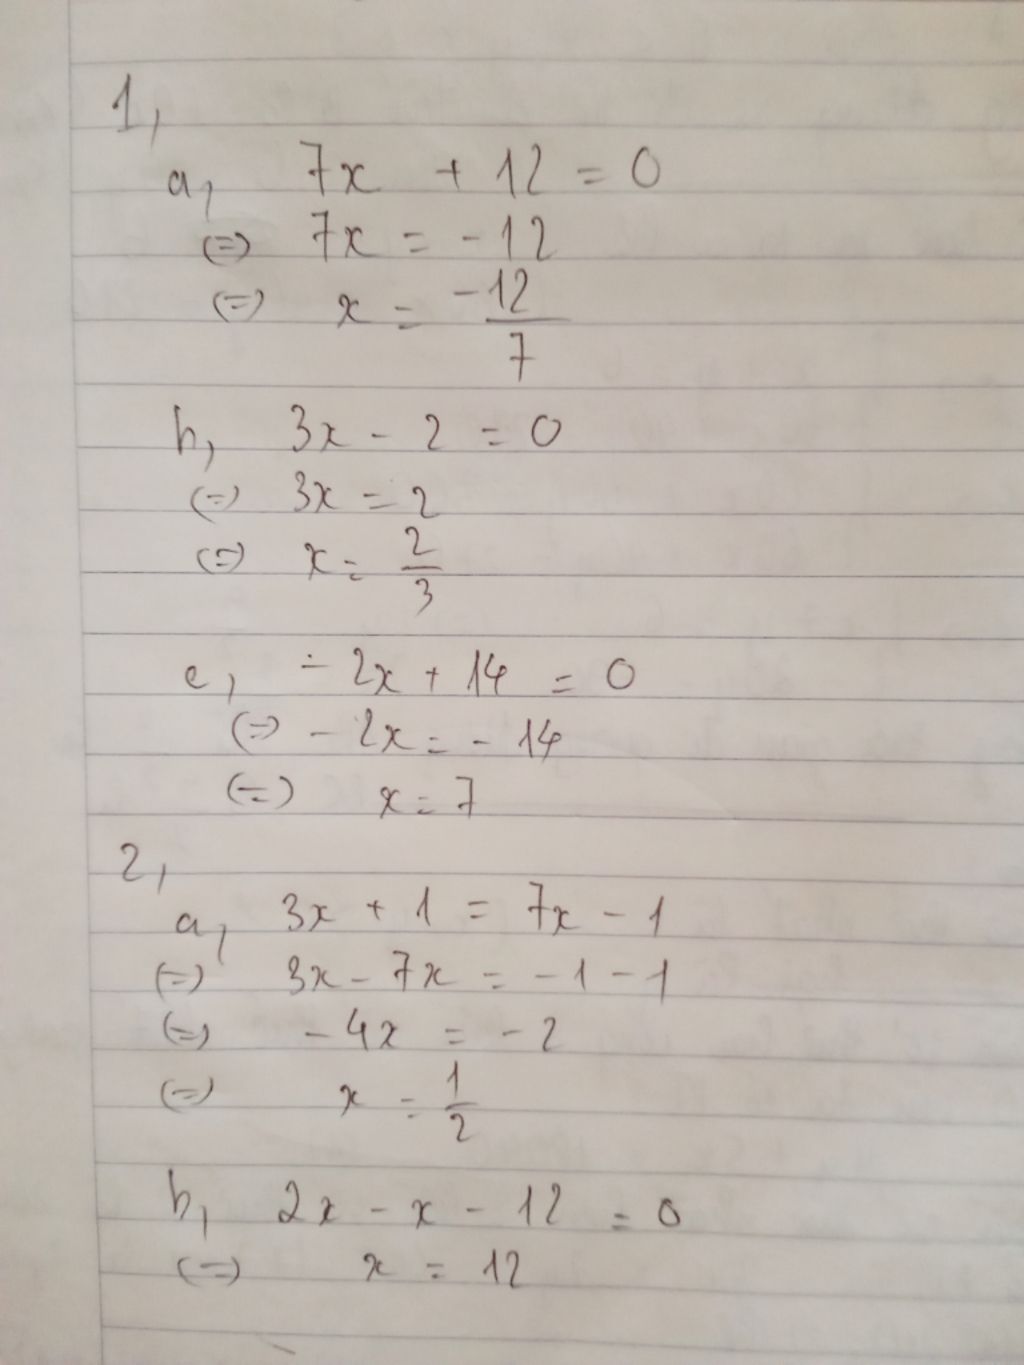 1,
a, 7x + 12 = 0
(=) 7x = -12
(=) x = -12/7
b, 3x - 2 = 0
(=) 3x = 2
(=) x = 2/3
c, - 2x + 14 = 0
(=) - 2x = - 14
(=) x = 7
2,
a, 3x + 1 = 7x - 1
(=) 3x - 7x = -1 - 1
(=) - 4x = - 2
(=) x = 1/2
b, 2x - x - 12 = 0
(=) x = 12